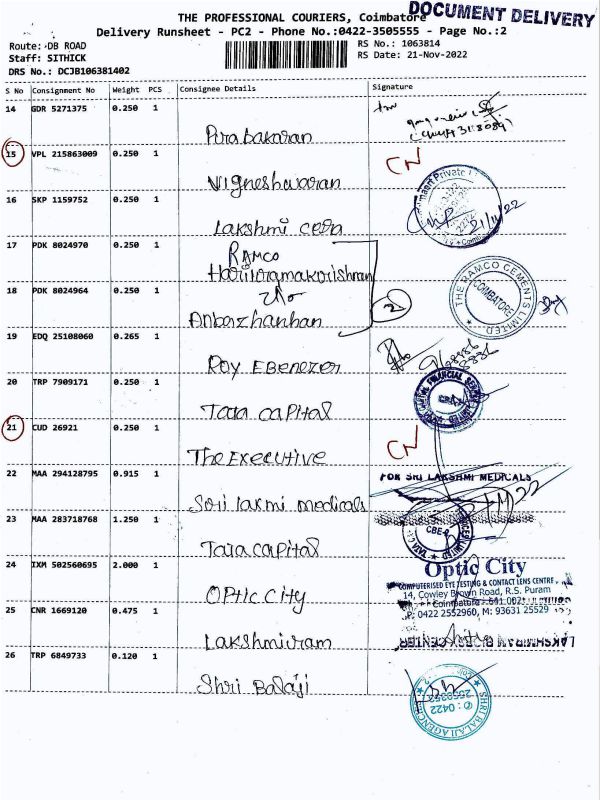 THE PROFESSIONAL COURIERS, Coimbatore
DOCUMENT DELIVERY
Delivery Runsheet - PC2 - Phone No.:0422-3505555 - Page No.:2
Route: DB ROAD
RS No.: 1063814
Staff: SITHICK
RS Date: 21-Nov-2022
DRS No.: DCJB106381402
S No Consignment No Weight PCS Consignee Details Signature
14 GDR 5271375 0.250 1
Purabakaran
15 VPL 215863009 0.250 1 CN
Vigneshwaran
16 SKP 1159752 0.250 1
Lakshmi Cera
21/11/22
17 PDK 8024970 0.250 1
RAMCO
Hariramakrishnan
18 PDK 8024964 0.250 1
2
THE RAMCO CEMENTS LIMITED
COIMBATORE
Anbazhanhan
19 EDQ 25108060 0.265 1
Roy Ebenezer
20 TRP 7909171 0.250 1
Tata Capital
21 CUD 26921 0.250 1 CN
The Executive
22 MAA 294128795 0.915 1
FOR SRI LAKSHMI MEDICALS
Sri laxmi medicals
23 MAA 283718768 1.250 1
Tata Capital
24 IXM 502560695 2.000 1
Optic City
COMPUTERISED EYE TESTING & CONTACT LENS CENTRE
14, Cowley Brown Road, R.S. Puram
Coimbatore - 641 002
P: 0422 2552960, M: 93631 25529
Optic City
25 CNR 1669120 0.475 1
Lakshmiram
26 TRP 6849733 0.120 1
Shri Balaji
SHRI BALAJI AGENCIES